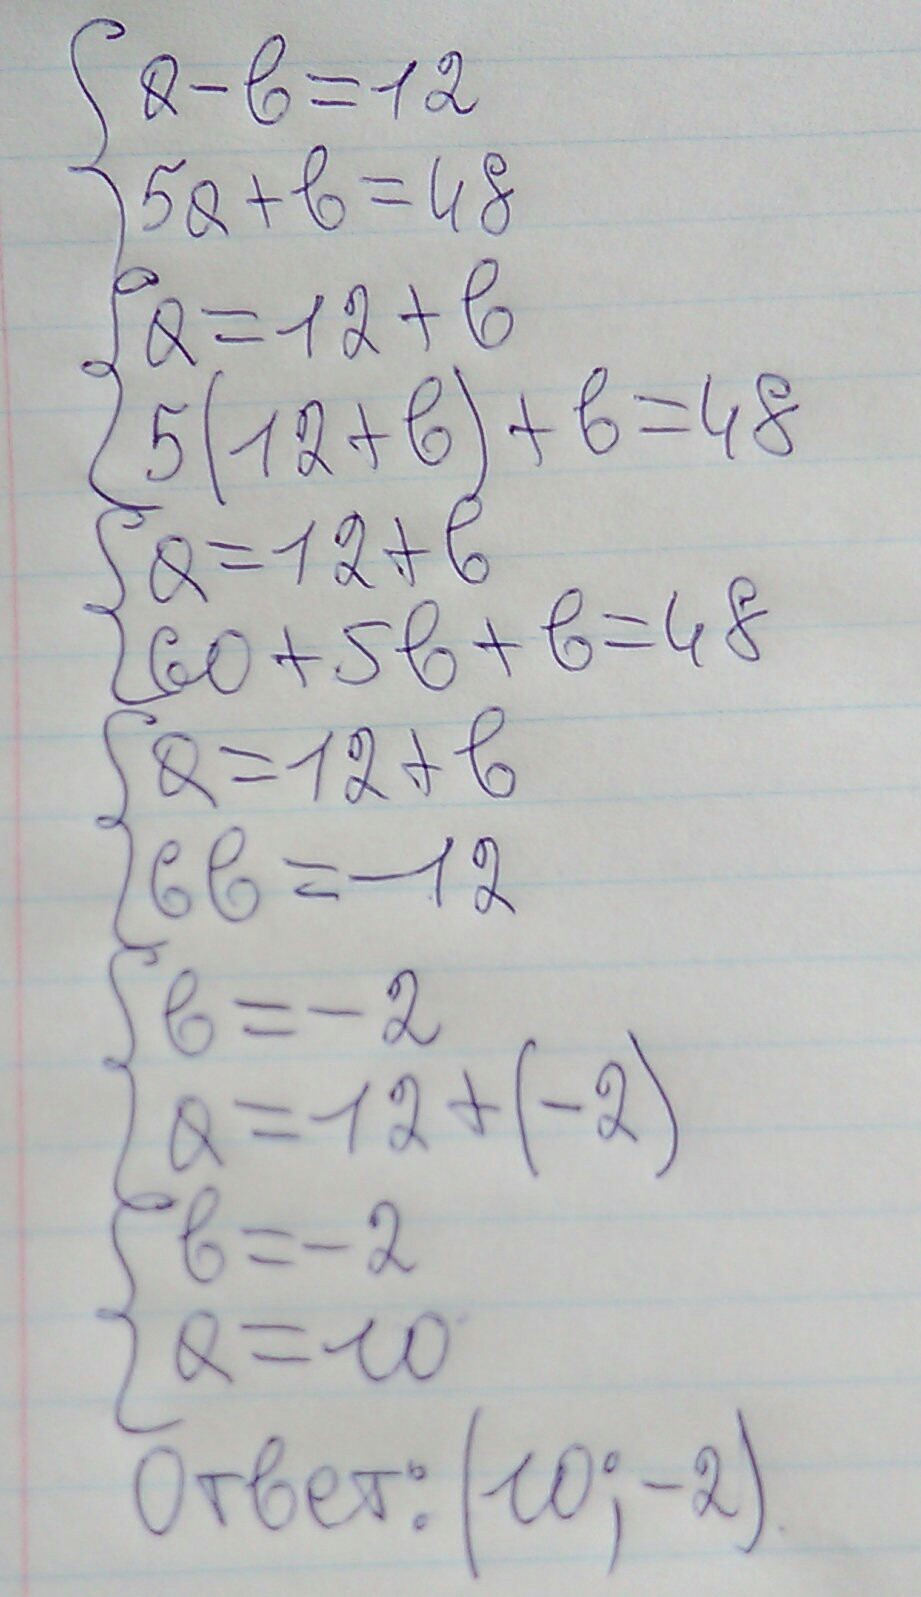 a-b=12
5a+b=48
a=12+b
5(12+b)+b=48
a=12+b
60+5b+b=48
a=12+b
6b=-12
b=-2
a=12+(-2)
b=-2
a=10
Ответ: (10;-2).